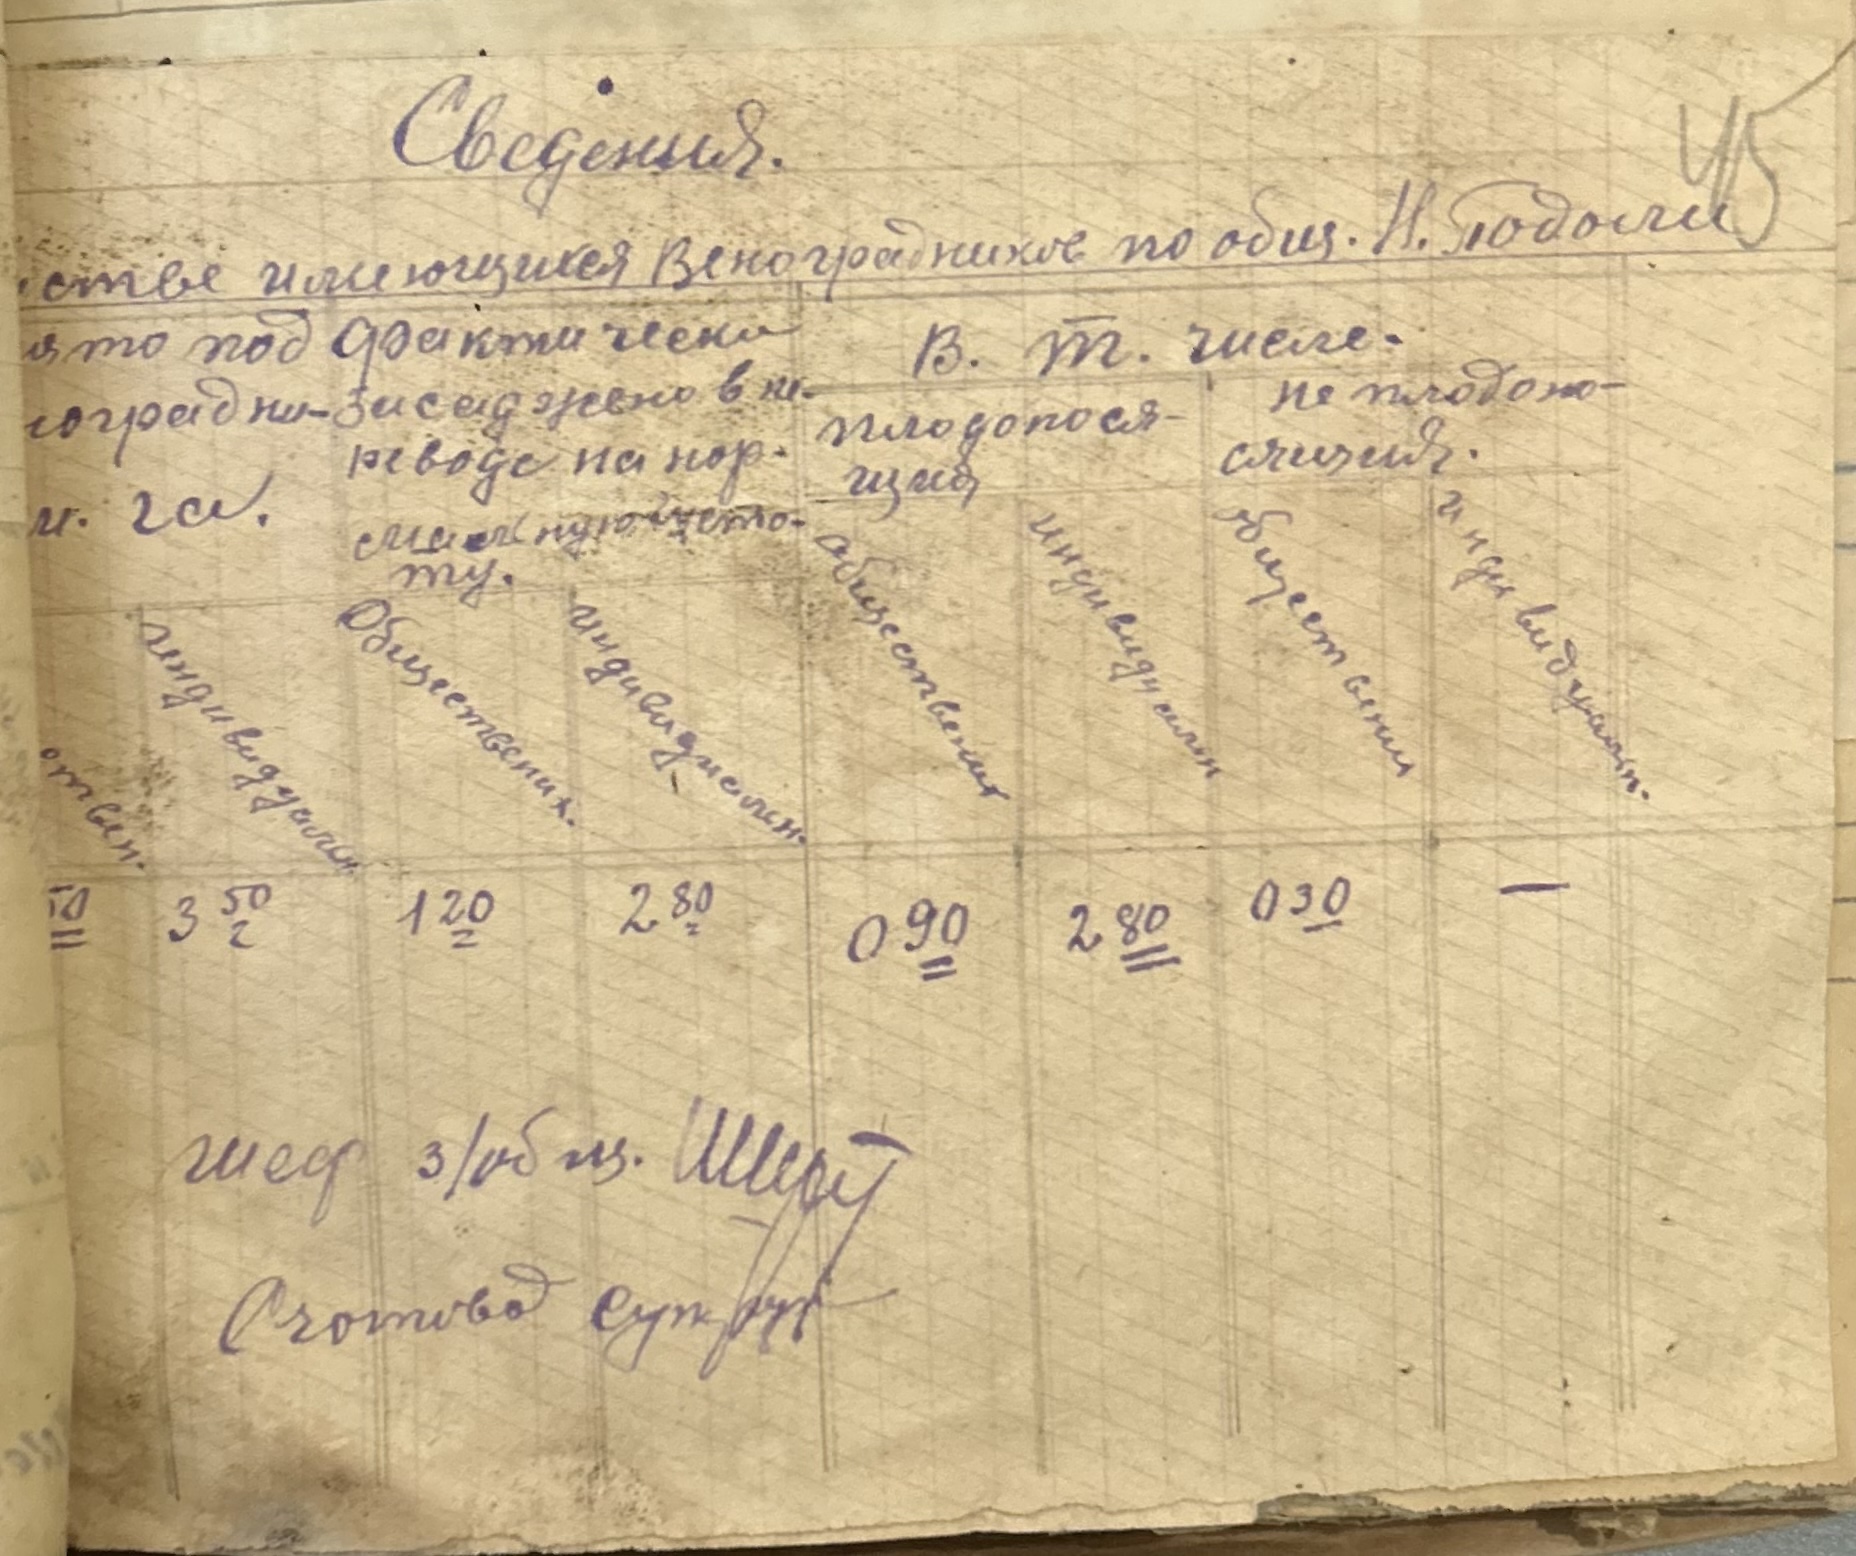 Сведения.
45
стве имеющихся Веноградников по общ. Н. Подоли
ято под
ноградни-
и. га.
Фактически
засаджено в пе-
реводе на нор-
мальную густо-
ту.
В. т. числе.
плодонося-
щия
не плодоно-
сящия.
ствен.
индивидуальн.
Обществених.
индивидуальн.
обществения
индивидуальн
обществения
индивидуальн.
50 3 50 1 20 2 80 0 90 2 80 0 30 —
шеф з/общ.
Счотовод